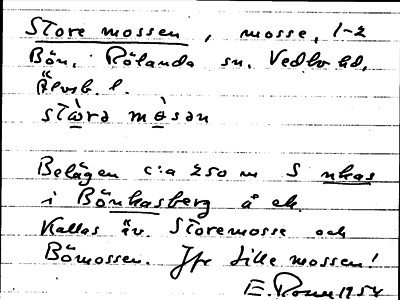 Store mossen, mosse, 1-2
Bön, Rölanda sn. Vedbo hd,
Älvsb. l.
stẁra mòsan
Belägen c:a 250 m S nkas
i Bönkasberg å ek.
Kallas äv. Storemosse och
Bömossen. Jfr Lille mossen!
E. 1954